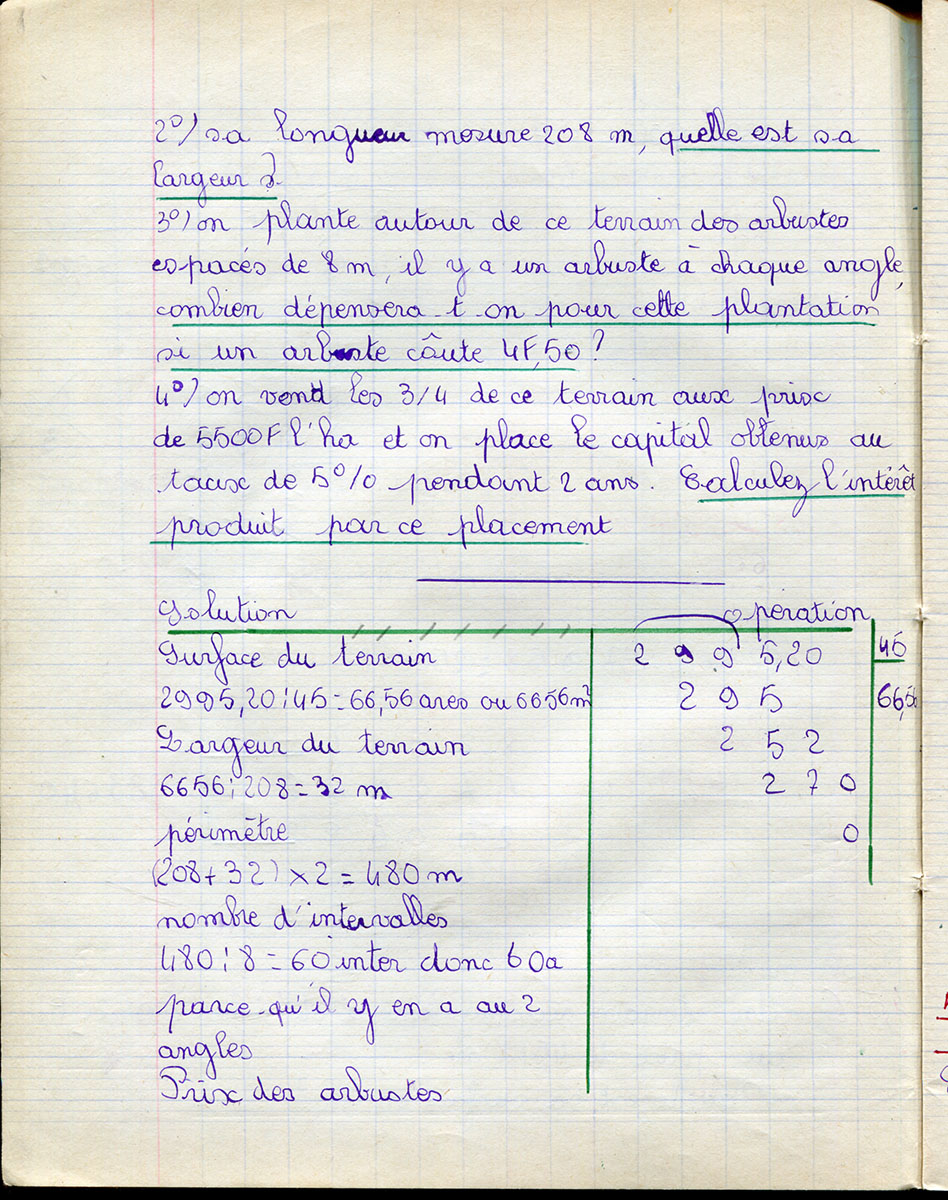 2°) sa longueur mesure 208 m, quelle est sa
largeur ?
3°) on plante autour de ce terrain des arbustes
espacés de 8 m, il y a un arbuste à chaque angle,
combien dépensera-t-on pour cette plantation
si un arbuste coûte 4F,50 ?
4°) on vend les 3/4 de ce terrain aux prix
de 5500F l'ha et on place le capital obtenus au
taux de 5% pendant 2 ans. Calculez l'intérêt
produit par ce placement
Solution opération
Surface du terrain
2995,20 : 45 = 66,56 ares ou 6656 m²
Largeur du terrain
6656 : 208 = 32 m
périmètre
(208 + 32) × 2 = 480 m
nombre d'intervalles
480 : 8 = 60 inter donc 60a
parce qu'il y en a au 2
angles
Prix des arbustes
2 9 9 5,20 45
2 9 5 66,56
2 5 2
2 7 0
0